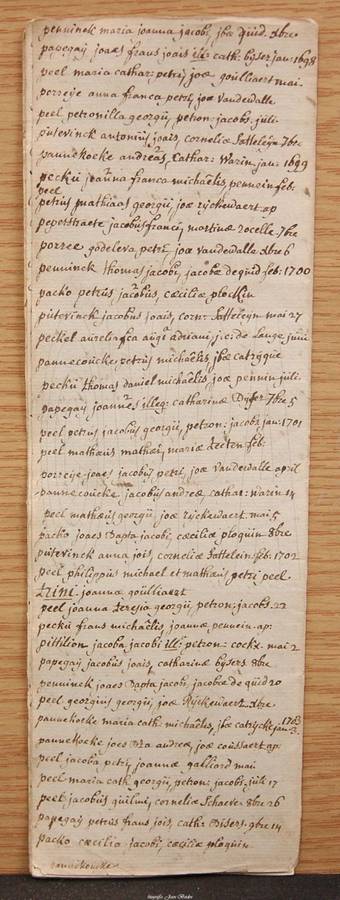 penninck maria joanna jacobi, jbæ quid. xbre
papegaij joaēs frans joais ill: cath. bijser jan: 1698
peel maria cathar: petri, joæ goulliaert mai.
porreije anna franca petri, joæ vandewalle
peel petronilla georgii, petron: jacobs. juli.
putevinck antonius joais, corneliæ satteleijn 7bre
pannekoeke andreas, cathar: warin jan: 1699
peckü joanna franca michaëlis, pennein feb:
peel
petrus mathias georgii, joæ rijckewaert ap
jacobus franci, martinæ 7bre
porree godeleva petri, joæ vandewalle xbre 6
penninck thomas jacobi, jacobæ de quid feb: 1700
packo petrus jacobus, cæciliæ plockin
putevinck jacobus joais, corn: satteleijn mai 27
peckel aurelia adriani, de lange junii
pannecoucke petrus michaëlis, jbæ catrijque
peckü thomas daniel michaëlis, joæ pennin juli.
papegaij joannes illeg: catharinæ bijser 7bre 5
peel petrus jacobus georgii, petron: jacobs jan: 1701
peel mathæus mathæi, mariæ feb:
porreije joaēs jacobus petri, joæ vandewalle april
pannecoucke jacobus andreæ, cathar: warin 14
peel mathæus georgii, joæ rijckewaert. mai. 5
packo joaēs bapta jacobi, cæciliæ ploquin 8bre
putevinck anna jois, corneliæ sattelein feb: 1702
peel philippus michael et mathæus petri peel
trini. joannæ goulliaert
peel joanna teresia georgii, petron: jacobs. 22
peckü frans michaëlis, joannæ pennein ap:
pittilion jacoba jacobi ill: petron: cockx. mai 2
papegaij jacobus joais, catharinæ bijsers. 8bre
penninck joaēs bapta jacobi, jacobæ de quid 20
peel georgius georgii, joæ Rijckewaert. xbre
pannekoeke maria cath: michaëlis, jbæ catrijcke jan: 1703
pannekoeke joēs bta andreæ, joæ coussaert ap
peel jacoba petri, joannæ galliard mai
peel maria cath georgii, petron: jacobs. juli 17
peel jacobus quilini, corneliæ schaeve. 8bre 26
papegaij petrus frans jois, cath: bisers. 9bre 14
packo cæcilia jacobi, cæciliæ ploquin
pannekoucke